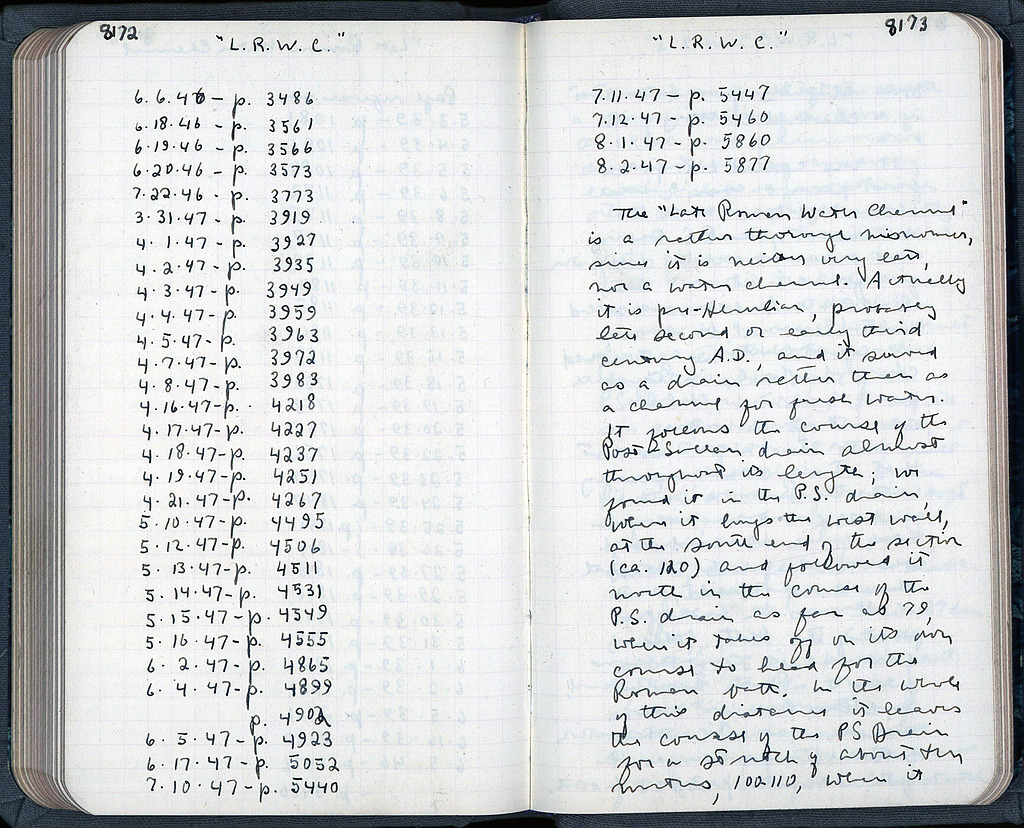 8172
"L. R. W. C."
6.6.46 - p. 3486
6.18.46 - p. 3561
6.19.46 - p. 3566
6.20.46 - p. 3573
7.22.46 - p. 3773
3.31.47 - p. 3919
4.1.47 - p. 3927
4.2.47 - p. 3935
4.3.47 - p. 3949
4.4.47 - p. 3959
4.5.47 - p. 3963
4.7.47 - p. 3972
4.8.47 - p. 3983
4.16.47 - p. 4218
4.17.47 - p. 4227
4.18.47 - p. 4237
4.19.47 - p. 4251
4.21.47 - p. 4267
5.10.47 - p. 4495
5.12.47 - p. 4506
5.13.47 - p. 4511
5.14.47 - p. 4531
5.15.47 - p. 4549
5.16.47 - p. 4555
6.2.47 - p. 4865
6.4.47 - p. 4899
p. 4902
6.5.47 - p. 4923
6.17.47 - p. 5052
7.10.47 - p. 5440
8173
"L. R. W. C."
7.11.47 - p. 5447
7.12.47 - p. 5460
8.1.47 - p. 5860
8.2.47 - p. 5877
The "Late Roman Water Channel"
is a rather thorough misnomer,
since it is neither very late,
nor a water channel. Actually
it is pre-Herulian, probably
late second or early third
century A.D., and it served
as a drain rather than as
a channel for fresh water.
It follows the course of the
Post-Sullan drain almost
throughout its length; we
found it in the P.S. drain,
where it hugs the west wall,
at the south end of the section
(ca. 120) and followed it
north in the course of the
P.S. drain as far as 79,
when it takes off on its own
course to head for the
Roman bath. In the whole
of this distance it leaves
the course of the PS Drain
for a stretch of about ten
metres, 100-110, when it